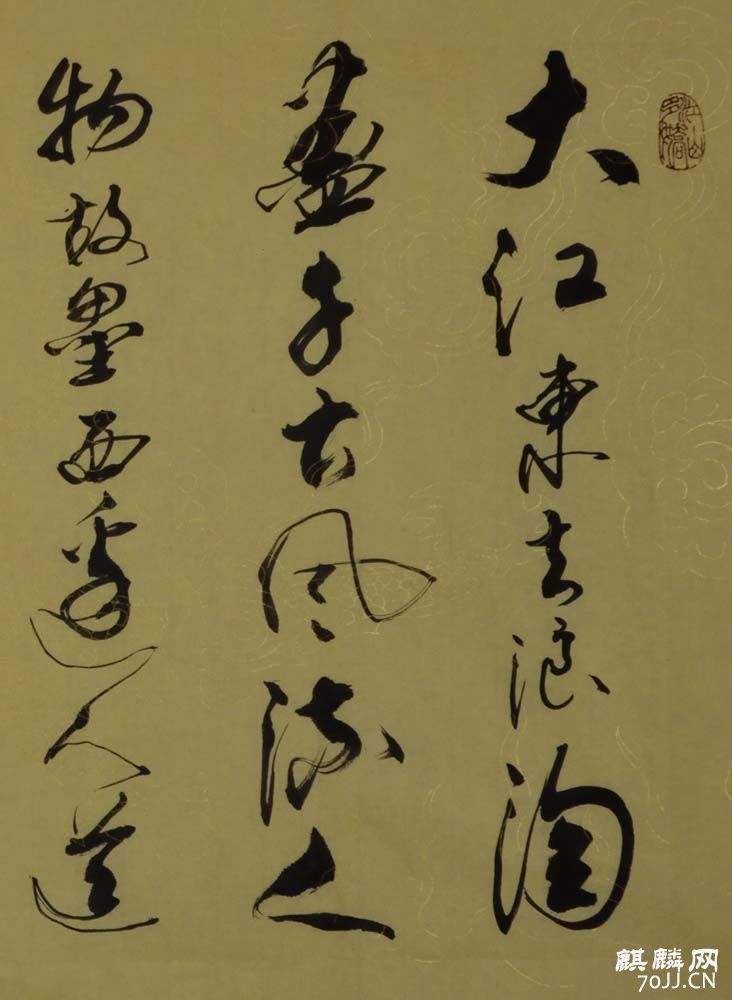 大江東去浪淘
盡千古風流人
物故壘西邊人道
江山多嬌
麒麟网
70JJ.CN